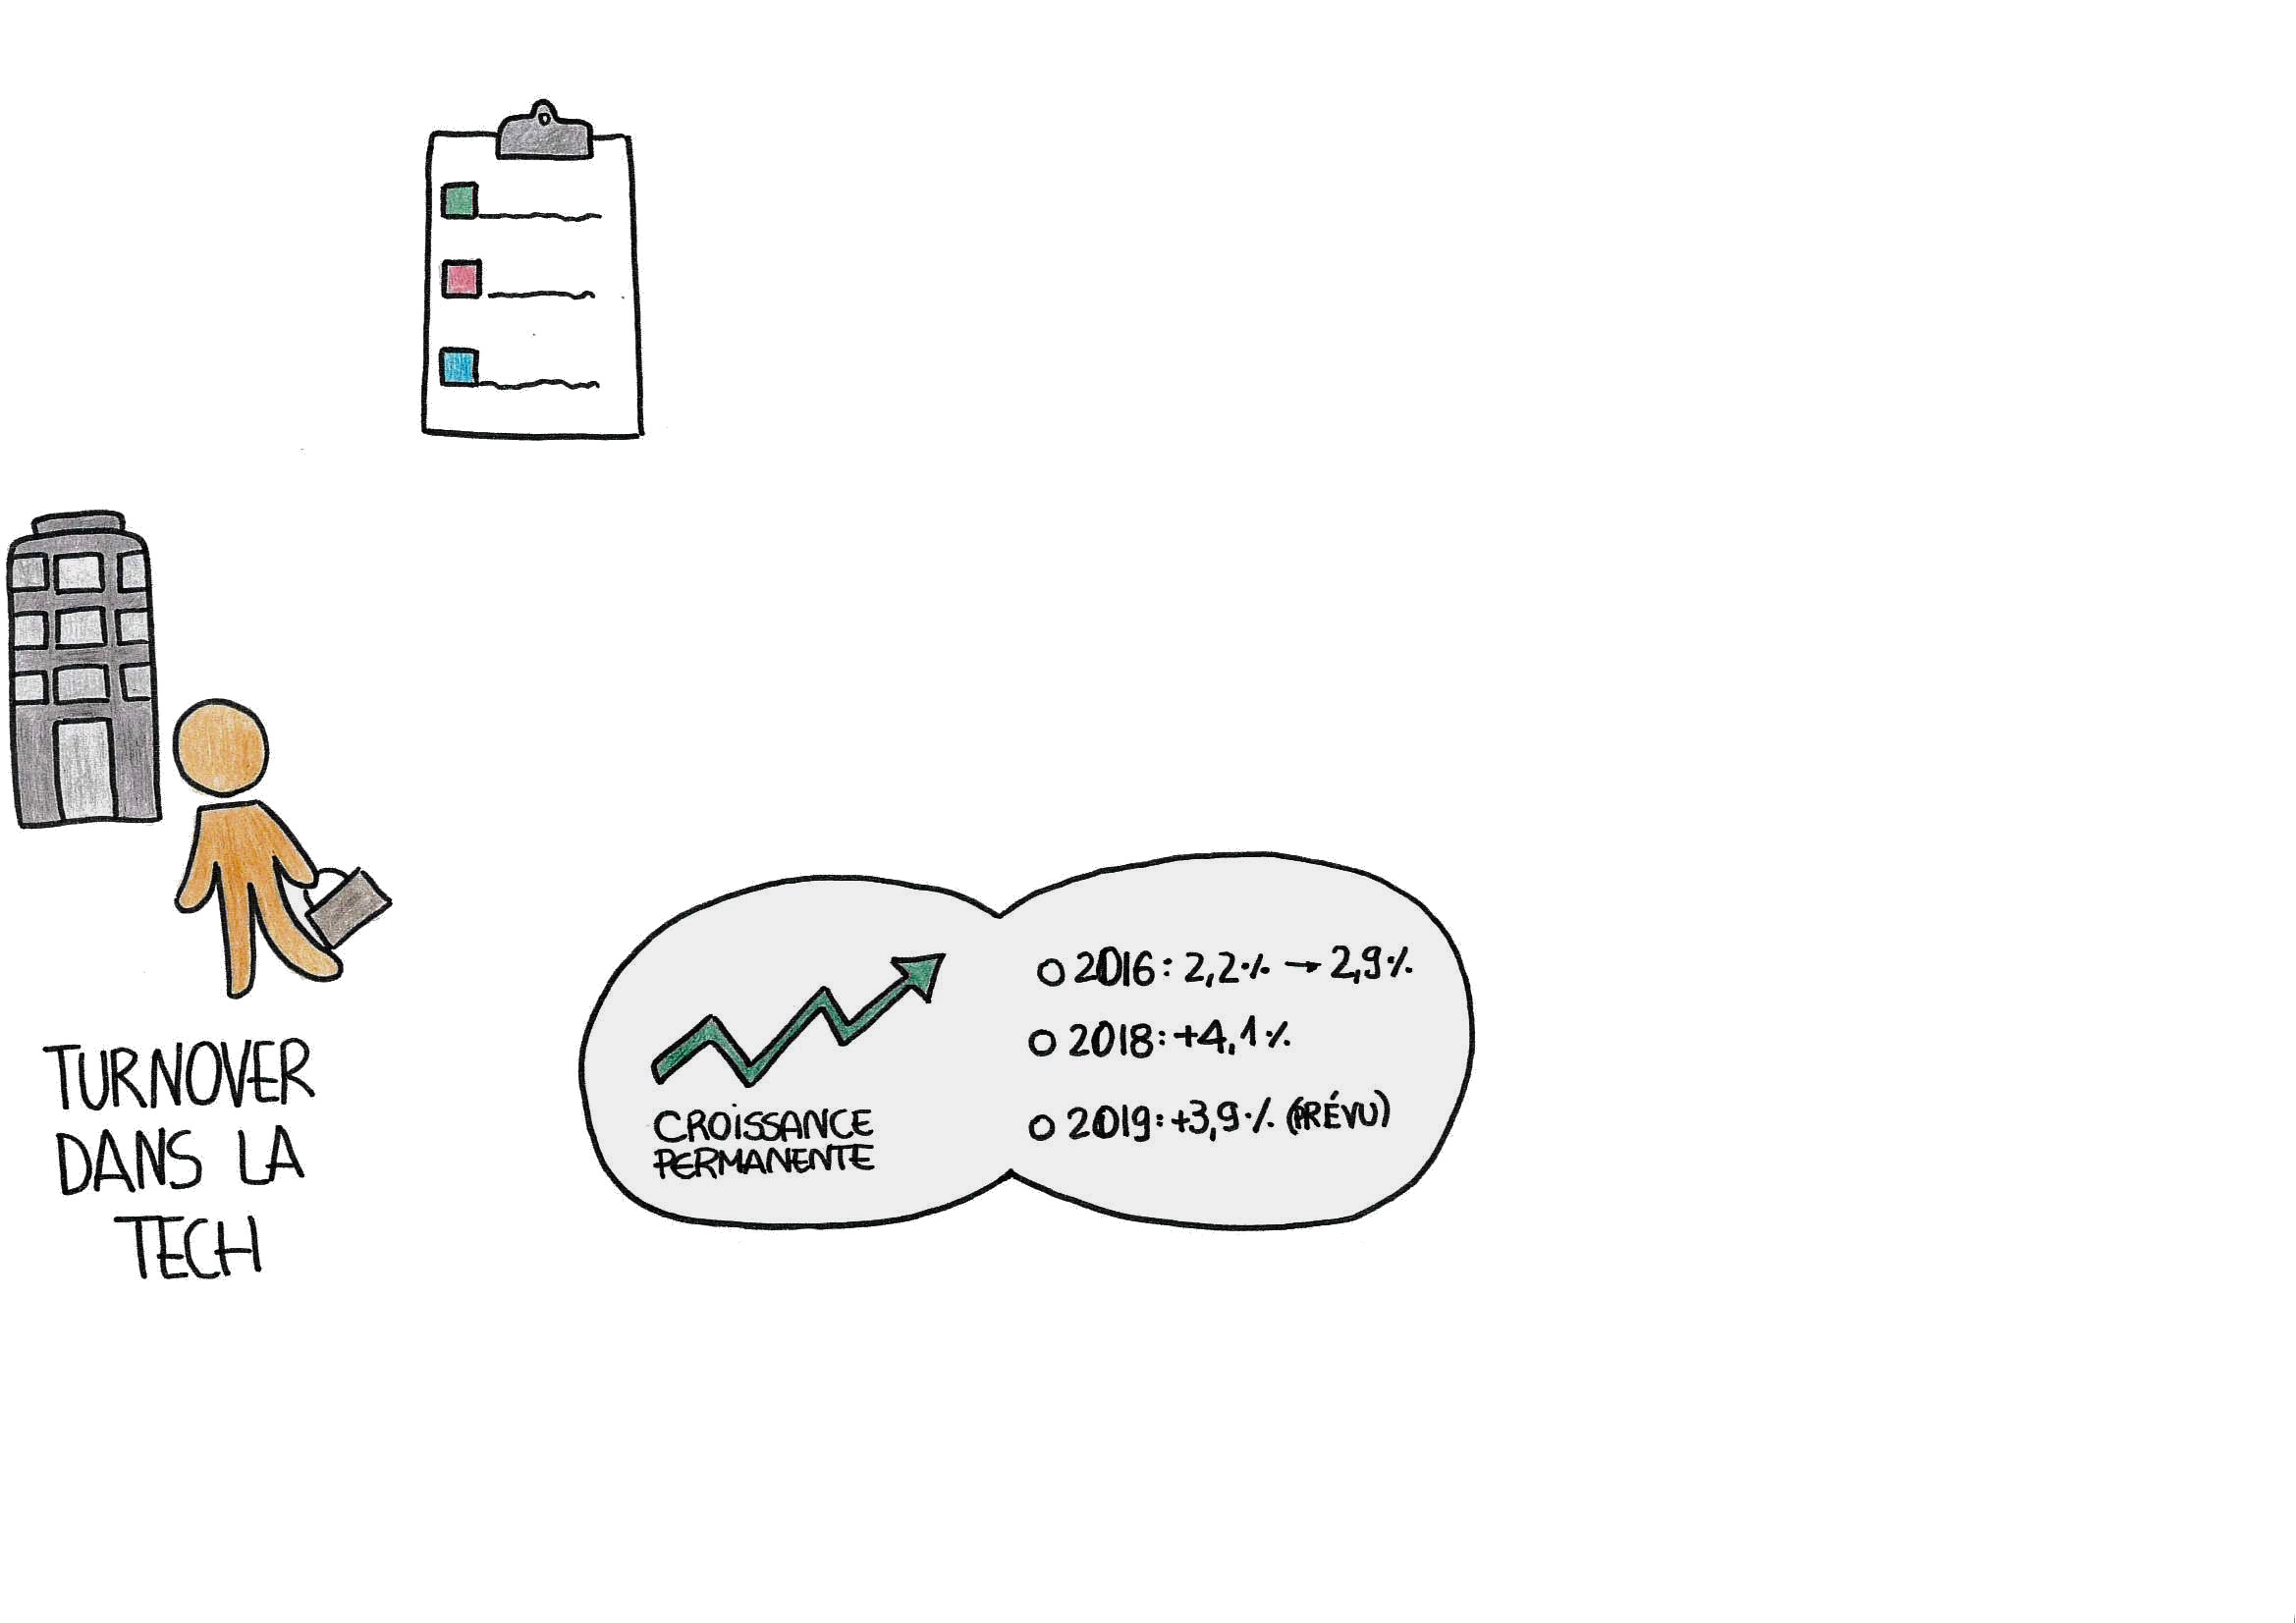 TURNOVER
DANS LA
TECH
CROiSSANCE
PERMANENTE
○ 2016: 2,2% → 2,9%
○ 2018: +4,1%
○ 2019: +3,9% (PRÉVU)